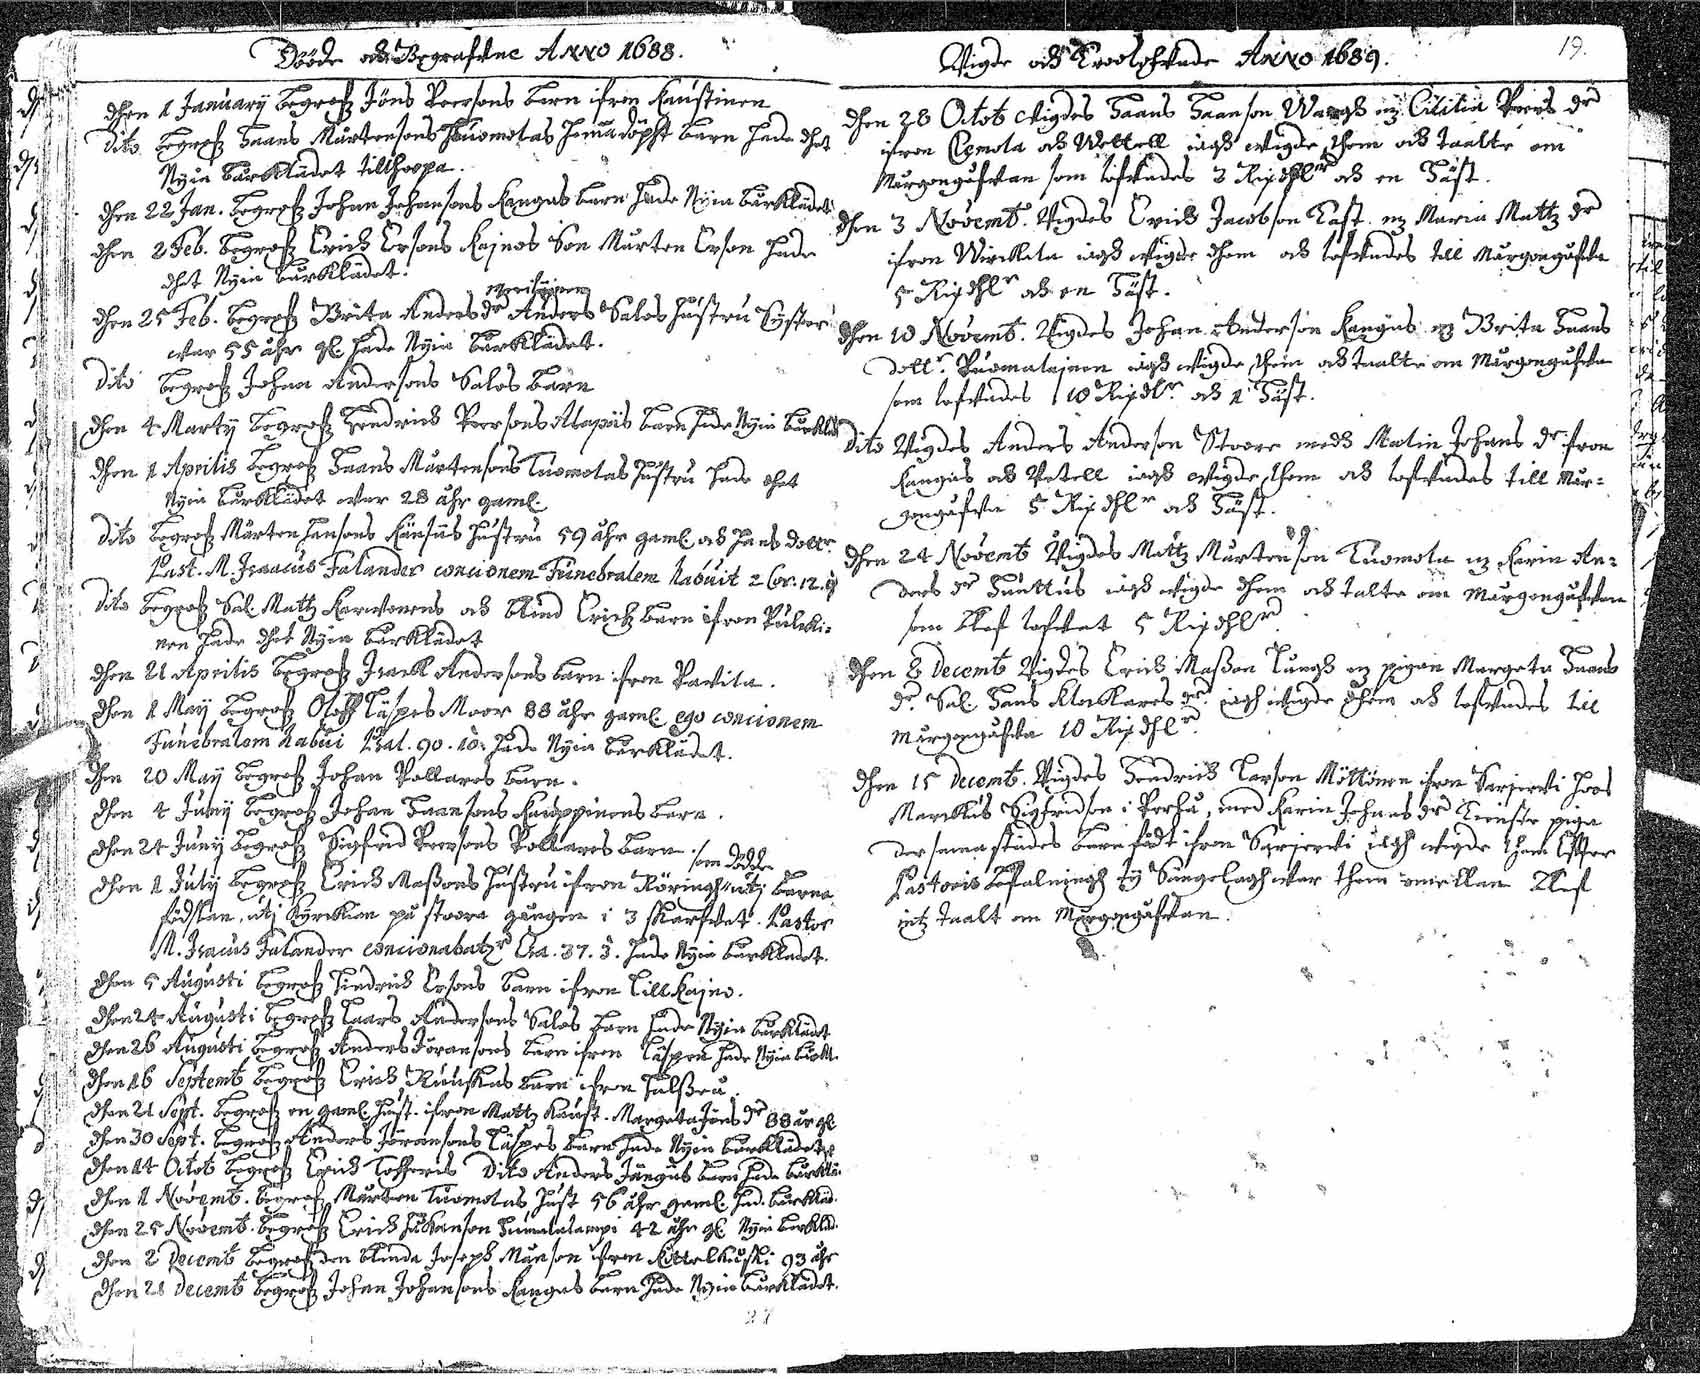 Dööde och Begrafvne Anno 1688.
dhen 1 January begrofz Jöns Peersons barn ifron Kaustinen
Dito begrofz Hans Mårtensons Tuomolas hemadöpt barn hade dhet
Nyia bårklädet tillhoopa.
dhen 22 Jan. begrofz Johan Johansons Kangas barn hade Nyia bårklädet
dhen 2 Feb. begrofz Erich Ersons Kainos Son Mårten Erson hade
dhet Nyia bårklädet.
dhen 25 Feb. begrofz Brita Anders dr Anders Salos hustru Syster
war 55 åhr gl. hade Nyia bårklädet.
Dito begrofz Johan Andersons Salos barn
dhen 4 Marty begrofz Hendrich Peersons Alapiis barn hade Nyia bårkläd
dhen 1 Aprilis begrofz Hans Mårtensons Tuomolas hustru hade dhet
Nyia bårklädet war 28 åhr gaml.
Dito begrofz Mårten Hansons Känsäs hustru 59 åhr gaml. och hans dotr.
Past. M. Isaacus Falander concionem Funebralem habuit 2 Cor. 12. 9
Dito begrofz Sal. Mattz Karvonens och blind Erichz barn ifron Pulcki-
nen hade dhet Nyia bårklädet
dhen 21 Aprilis begrofz Isack Andersons barn ifron Pavila.
dhen 1 May begrofz Oloff Täspes Moor 88 åhr gaml. ego concionem
Funebralem habui Psal. 90. 10. hade Nyia bårklädet.
dhen 20 May begrofz Johan Pollares barn.
dhen 4 Juny begrofz Johan Hansons Kauppinens barn.
dhen 24 Juny begrofz Sigfred Peersons Pollares barn.
som dödde
dhen 1 July begrofz Erich Matzons hustru ifron Röringh utj barns
födslan, utj kyrckian på stoora gången i 3 skarfvet. Pastor
M. Isacus Falander concionabatr Esa. 37. 3. hade Nyia bårklädet.
dhen 5 Augusti begrofz Hindrich Ersons barn ifron Lillkajno.
dhen 24 Augusti begrofz Laars Andersons Salos barn hade Nyia bårklädet
dhen 26 Augusti begrofz Anders Jöransons barn ifron Täspen hade Nyia bårkl.
dhen 16 Septemb begrofz Erich Ruuskas barn ifron Halsua.
dhen 21 Sept. begrofz en gaml. hust. ifron Mattz Kaust. Margeta Jöns dr 88 år gl.
dhen 30 Sept. begrofz Anders Jöransons Täspes barn hade Nyia bårklädet
dhen 14 Octob begrofz Erich Tofferis Dito Anders Jängäs barn hade bårklä.
dhen 1 Novemb. begrofz Mårten Tuomolas hust 56 åhr gaml. had. bårkläd.
dhen 25 Novemb. begrofz Erich Håkanson Humalalampi 42 åhr gl. Nyia bårkläd.
dhen 2 Decemb begrofz den blinda Joseph Månson ifron Kottelkuski 93 åhr
dhen 28 Decemb begrofz Johan Johansons Kangas barn hade Nyia bårklädet.
Vigde och Troolofvade Anno 1689.
19.
dhen 28 Octob vigdes Hans Hanson Wargh mz Cicilia Peers dr
ifron Pemola och Wettell iagh vigde them och taalte om
Mårgongåfvan som lofvades 3 Rixdhlr och en Häst.
dhen 3 Novemb. Vigdes Erich Jacobson Kast. mz Maria Mattz dr
ifron Wirckala iagh vigde dhem och lofvades till Mårgongåfva
5 Rixdhlr och en Häst.
dhen 10 Novemb. Vigdes Johan Anderson Kangas mz Brita Hans
dottr. Puomalainen iagh vigde them och taalte om Mårgongåfva
som lofvades 10 Rixdlr. och 1 Häst.
Dito Vigdes Anders Anderson Stoore medh Malin Johans dr ifron
Kangas och Vetell iagh vigde them och lofvades till Mår-
gongåfva 5 Rixdhlr och Häst.
dhen 24 Novemb Vigdes Mattz Mårtenson Tuomola mz Karin An-
ders dr Huntus iagh vigde dhem och talte om Mårgongåfvan
som blef lofvat 5 Rixdhlr.
dhen 8 Decemb Vigdes Erich Matzon Lungh mz pigan Margeta Hans
dr. Sal. Hans Klockares dr. iagh vigde dhem och lofvades till
Mårgongåfva 10 Rixdhlr.
dhen 15 Decemb. Vigdes Hendrich Larson Möttönen ifron Sarjerwi hoos
Marckus Sigfredson i Perho, med Karin Johans dr tienste piga
der sammastädes barnfödt ifron Sarjerwi iagh vigde them effter
Pastoris befalningh ty Sängelagh war them emellan blef
intz taalt om Mårgongåfvan.